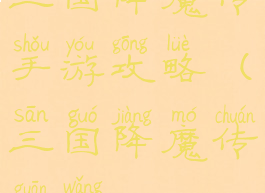 三国降魔传
shǒu yóu gōng lüè
手游攻略（
sān guó jiàng mó chuán
三国降魔传
guān wǎng